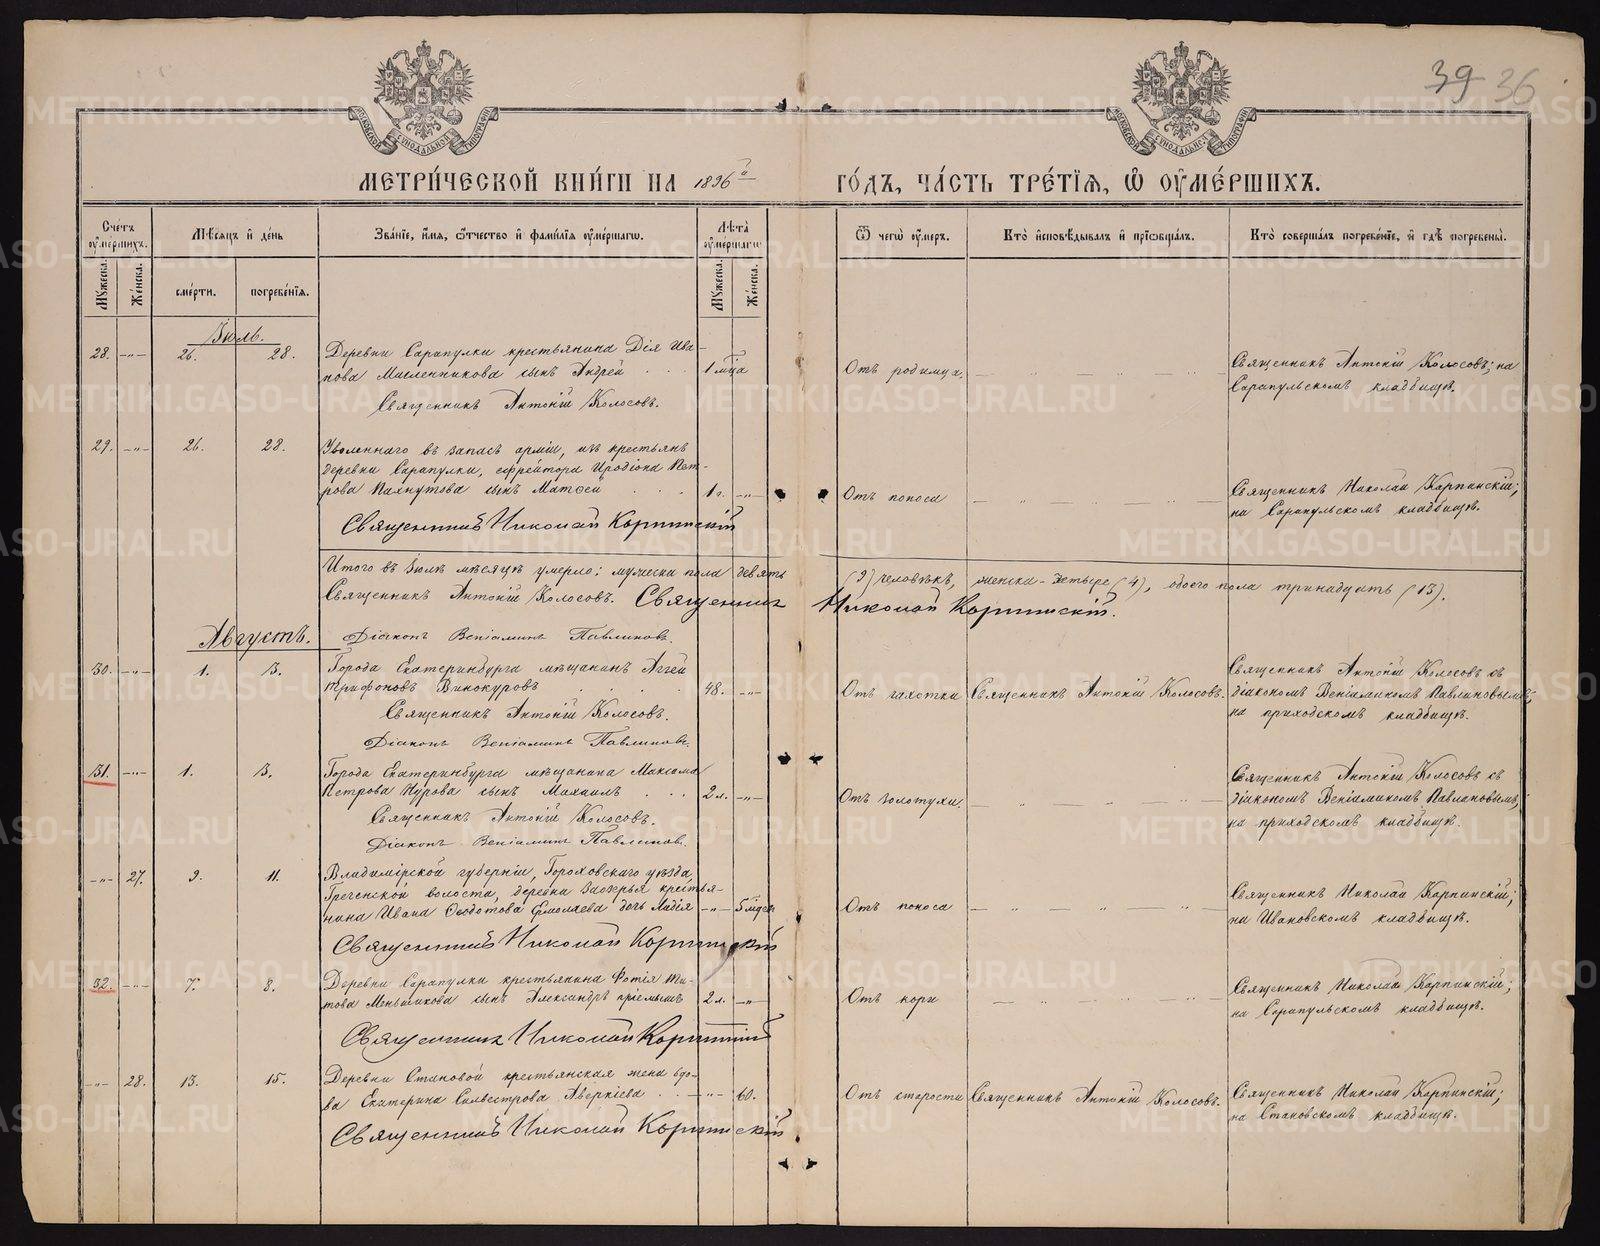 39 36
МОСКОВСКОЙ СѴНОДАЛЬНОЙ ТИПОГРАФІИ
МЕТРИ́ЧЕСКОЙ КНИ́ГИ НА 1896й ГО́ДЪ, ЧА́СТЬ ТРЕ́ТІѦ, Ѿ ОУМЕ́РШИХЪ.
Счетъ оумершихъ.
Мѣсяцъ и день
Званіе, имя, отчество и фамилія оумершагѡ.
Лѣта оумершагѡ
Ѿ чегѡ оумеръ.
Кто исповѣдывалъ и пріѡбщалъ.
Кто совершалъ погребеніе, и гдѣ погребены.
Мужеска.
Женска.
смерти.
погребенія.
Мужеска.
Женска.
Іюль.
28. —"— 26. 28.
Деревни Сарапулки крестьянина Дія Ива-
нова Масленникова сынъ Андрей . . . 1 мѣца
Священникъ Антоній Колосовъ.
Отъ родимца.
Священникъ Антоній Колосовъ; на
Сарапульскомъ кладбищѣ.
29. —"— 26. 28.
Уволеннаго въ запасъ арміи, изъ крестьянъ
деревни Сарапулки, ефрейтора Иродіона Пет-
рова Пахнутова сынъ Матѳей . . 1 г. —"—
Священникъ Николай Карпинскій
Отъ поноса
Священникъ Николай Карпинскій;
на Сарапульскомъ кладбищѣ.
Итого въ Іюлѣ мѣсяцѣ умерло: мужеска пола девять (9) человѣкъ, женска - четыре (4), обоего пола тринадцать (13).
Священникъ Антоній Колосовъ. Священникъ Николай Карпинскій.
Діаконъ Веніаминъ Павлиновъ.
Августъ.
30. —"— 1. 3.
Города Екатеринбурга мѣщанинъ Аггей
Трифоновъ Винокуровъ . . . . 48. —"—
Священникъ Антоній Колосовъ.
Діаконъ Веніаминъ Павлиновъ.
Отъ чахотки
Священникъ Антоній Колосовъ.
Священникъ Антоній Колосовъ съ
діакономъ Веніаминомъ Павлиновымъ;
на приходскомъ кладбищѣ.
31. —"— 1. 3.
Города Екатеринбурга мѣщанина Максима
Петрова сынъ Михаилъ . . . 2 л. —"—
Священникъ Антоній Колосовъ.
Діаконъ Веніаминъ Павлиновъ.
Отъ золотухи.
Священникъ Антоній Колосовъ съ
діакономъ Веніаминомъ Павлиновымъ;
на приходскомъ кладбищѣ.
—"— 27. 9. 11.
Владимірской губерніи, Гороховскаго уѣзда,
волости, деревни Заозерья крестья-
нина Ивана Ѳеодотова Ермолаева дочь Лидія —"— 5
Священникъ Николай Карпинскій
Отъ поноса
Священникъ Николай Карпинскій;
на Ивановскомъ кладбищѣ.
32. —"— 7. 8.
Деревни Сарапулки крестьянина Фотія Ти-
това Меньшикова сынъ Александръ пріемышъ 2 л. —"—
Священникъ Николай Карпинскій
Отъ кори
Священникъ Николай Карпинскій;
на Сарапульскомъ кладбищѣ.
—"— 28. 13. 15.
Деревни Становой крестьянская жена вдо-
ва Екатерина Сильвестрова Аверкіева . . —"— 60.
Священникъ Николай Карпинскій
Отъ старости
Священникъ Антоній Колосовъ.
Священникъ Николай Карпинскій;
на Становскомъ кладбищѣ.
METRIKI.GASO-URAL.RU